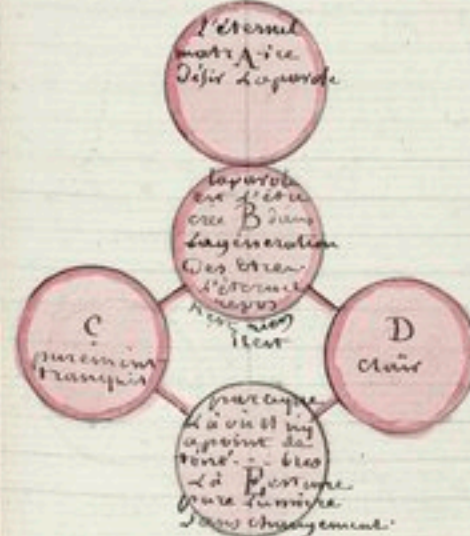 L'éternel
matrAice
Désir La parole
la parole
est l'être
cree B dans
La géneration
Des Etres
L'éternel
repos
rien
il est
C
purement
tranquil
D
Clair
parceque
Là où il n'y
a point de
téné - - bres
Là E est une
pure Lumière
Sans changement.